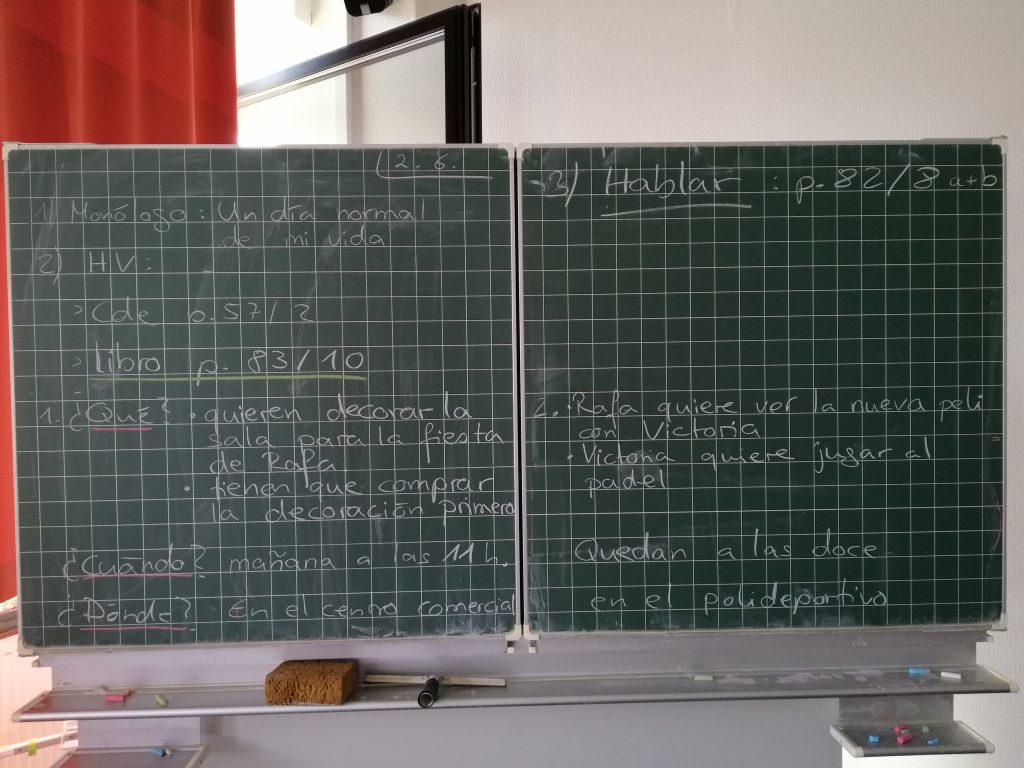 2. 6.
1) Monólogo : Un día normal
de mi vida
2) HV :
> Cde p. 57/2
> libro p. 83/10
1. ¿Qué? • quieren decorar la
sala para la fiesta
de Rafa
• tienen que comprar
la decoración primero
¿Cuándo? mañana a las 11 h.
¿Dónde? En el centro comercial
3) Hablar : p. 82/8 a+b
2. • Rafa quiere ver la nueva peli
con Victoria
• Victoria quiere jugar al
padel
Quedan a las doce
en el polideportivo